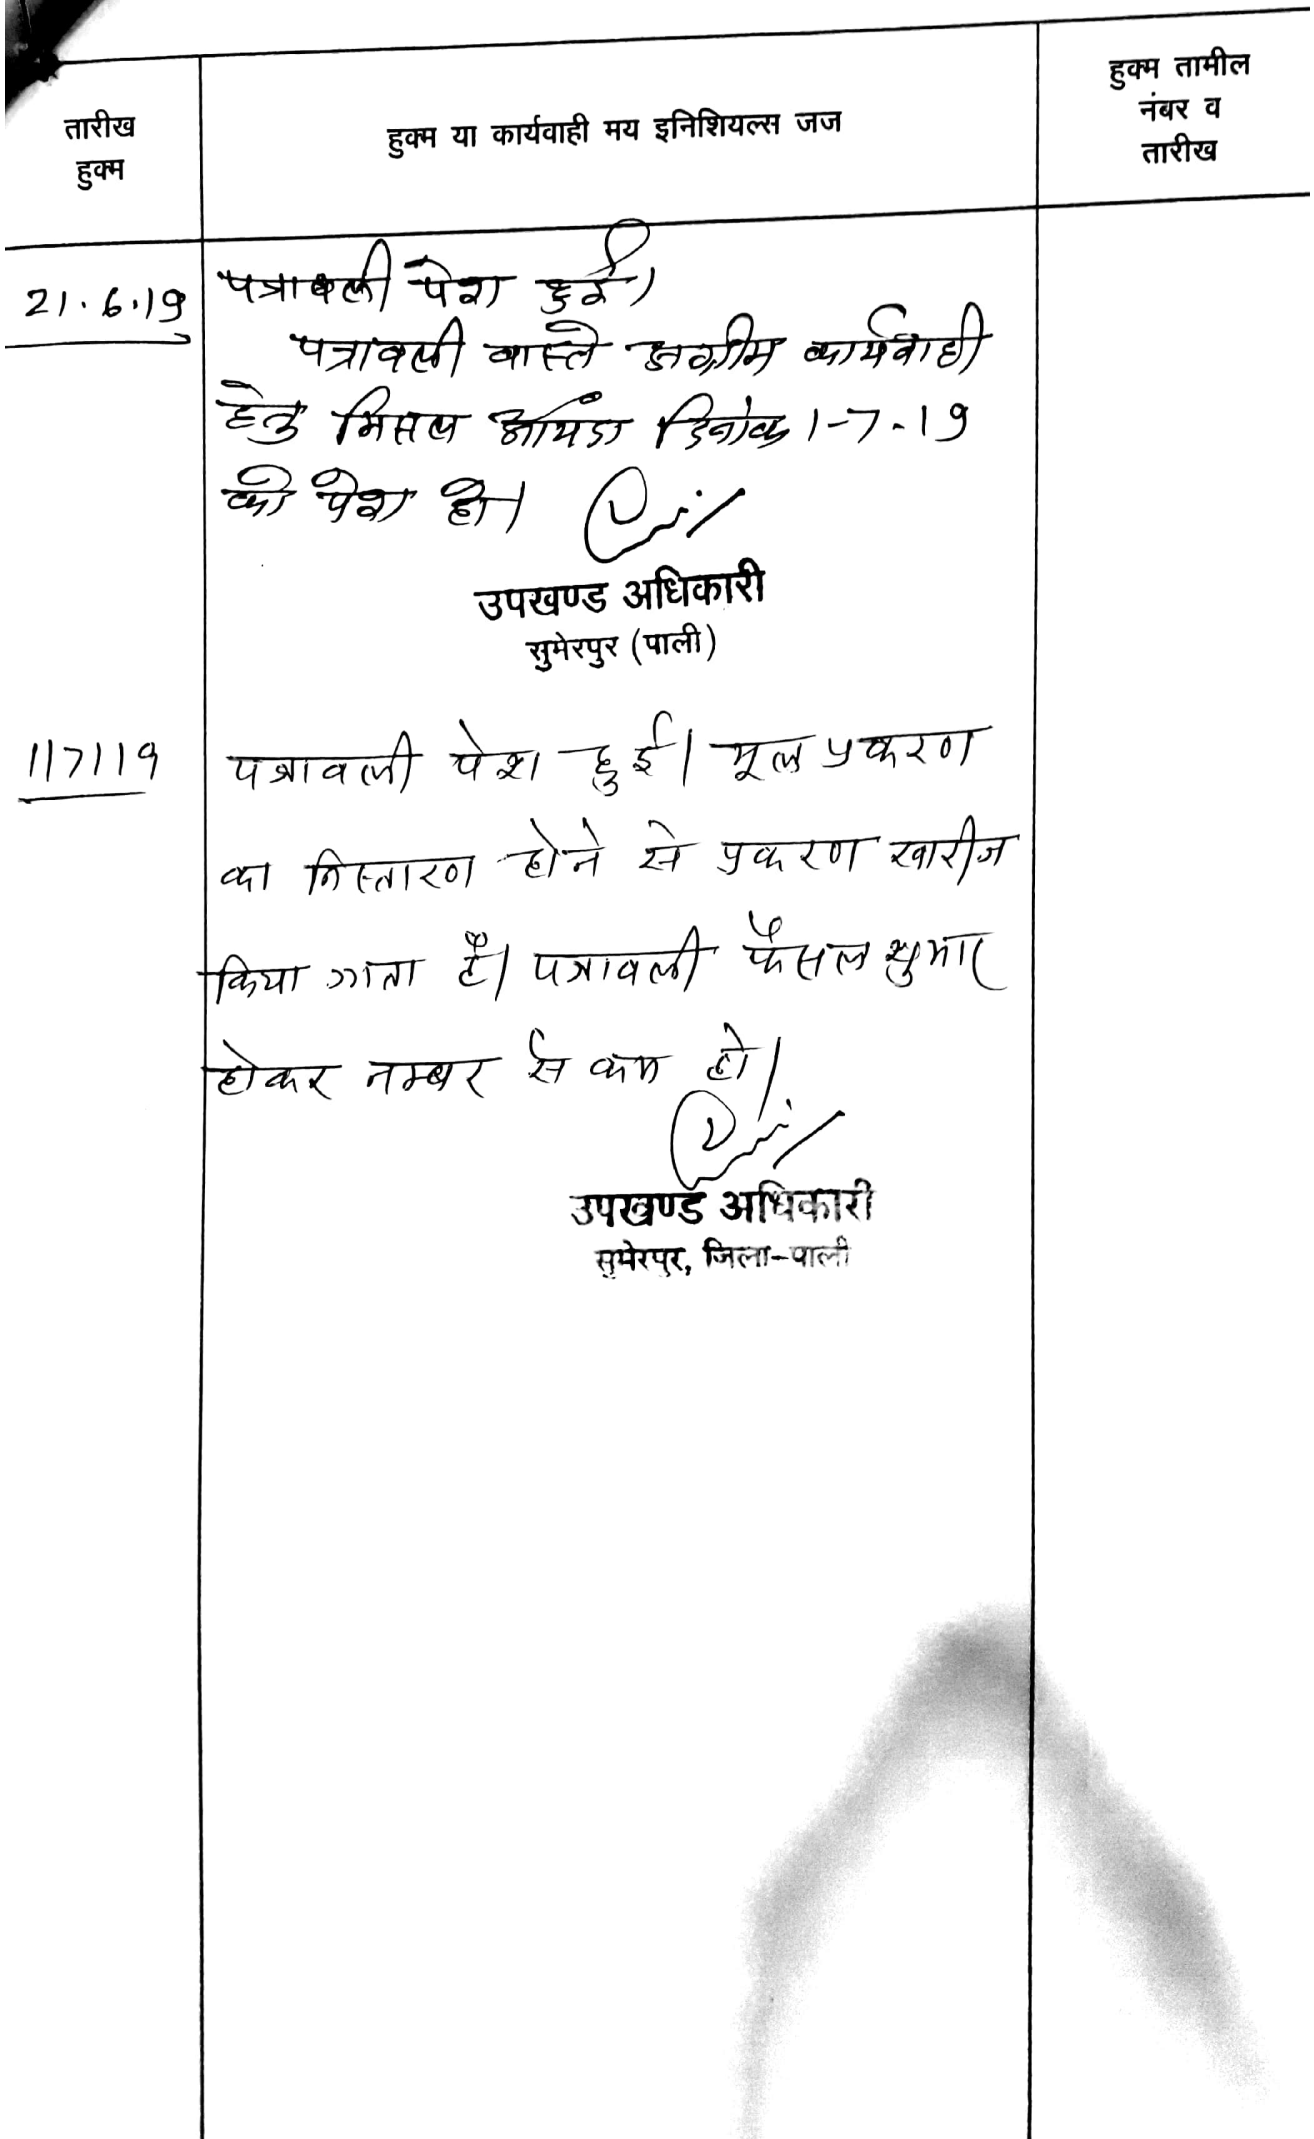 तारीख
हुक्म
हुक्म या कार्यवाही मय इनिशियल्स जज
हुक्म तामील
नंबर व
तारीख
21.6.19
पत्रावली पेश हुई।
पत्रावली वास्ते अग्रीम कार्यवाही
हेतु मिसल आयंदा दिनांक 1-7-19
को पेश हो।
उपखण्ड अधिकारी
सुमेरपुर (पाली)
1/7/19
पत्रावली पेश हुई। मूल प्रकरण
का निस्तारण होने से प्रकरण खारीज
किया जाता है। पत्रावली फैसल शुमार
होकर नम्बर से कम हो।
उपखण्ड अधिकारी
सुमेरपुर, जिला-पाली